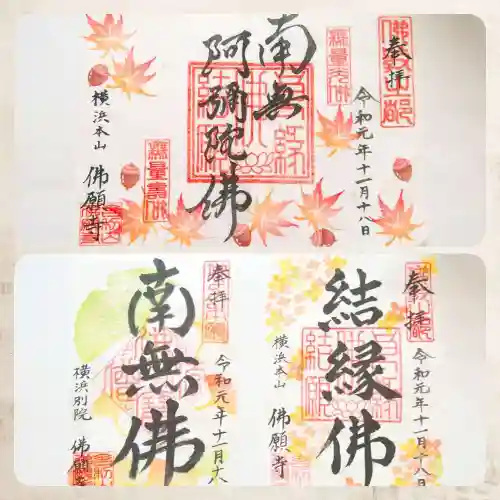 奉拝
令和元年十一月十八日
南無
阿彌陀佛
横浜本山
佛願寺
奉拝
令和元年十一月十八
南無佛
横浜別院
佛願寺
奉拝
令和元年十一月十八日
結縁佛
横浜本山
佛願寺